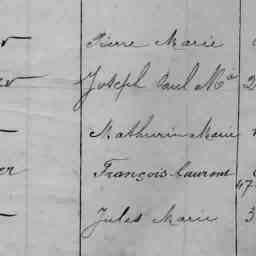 Pierre Marie
Joseph Paul Mª 2
Mathurin Marie
er François Laurent
47
Jules Marie 3